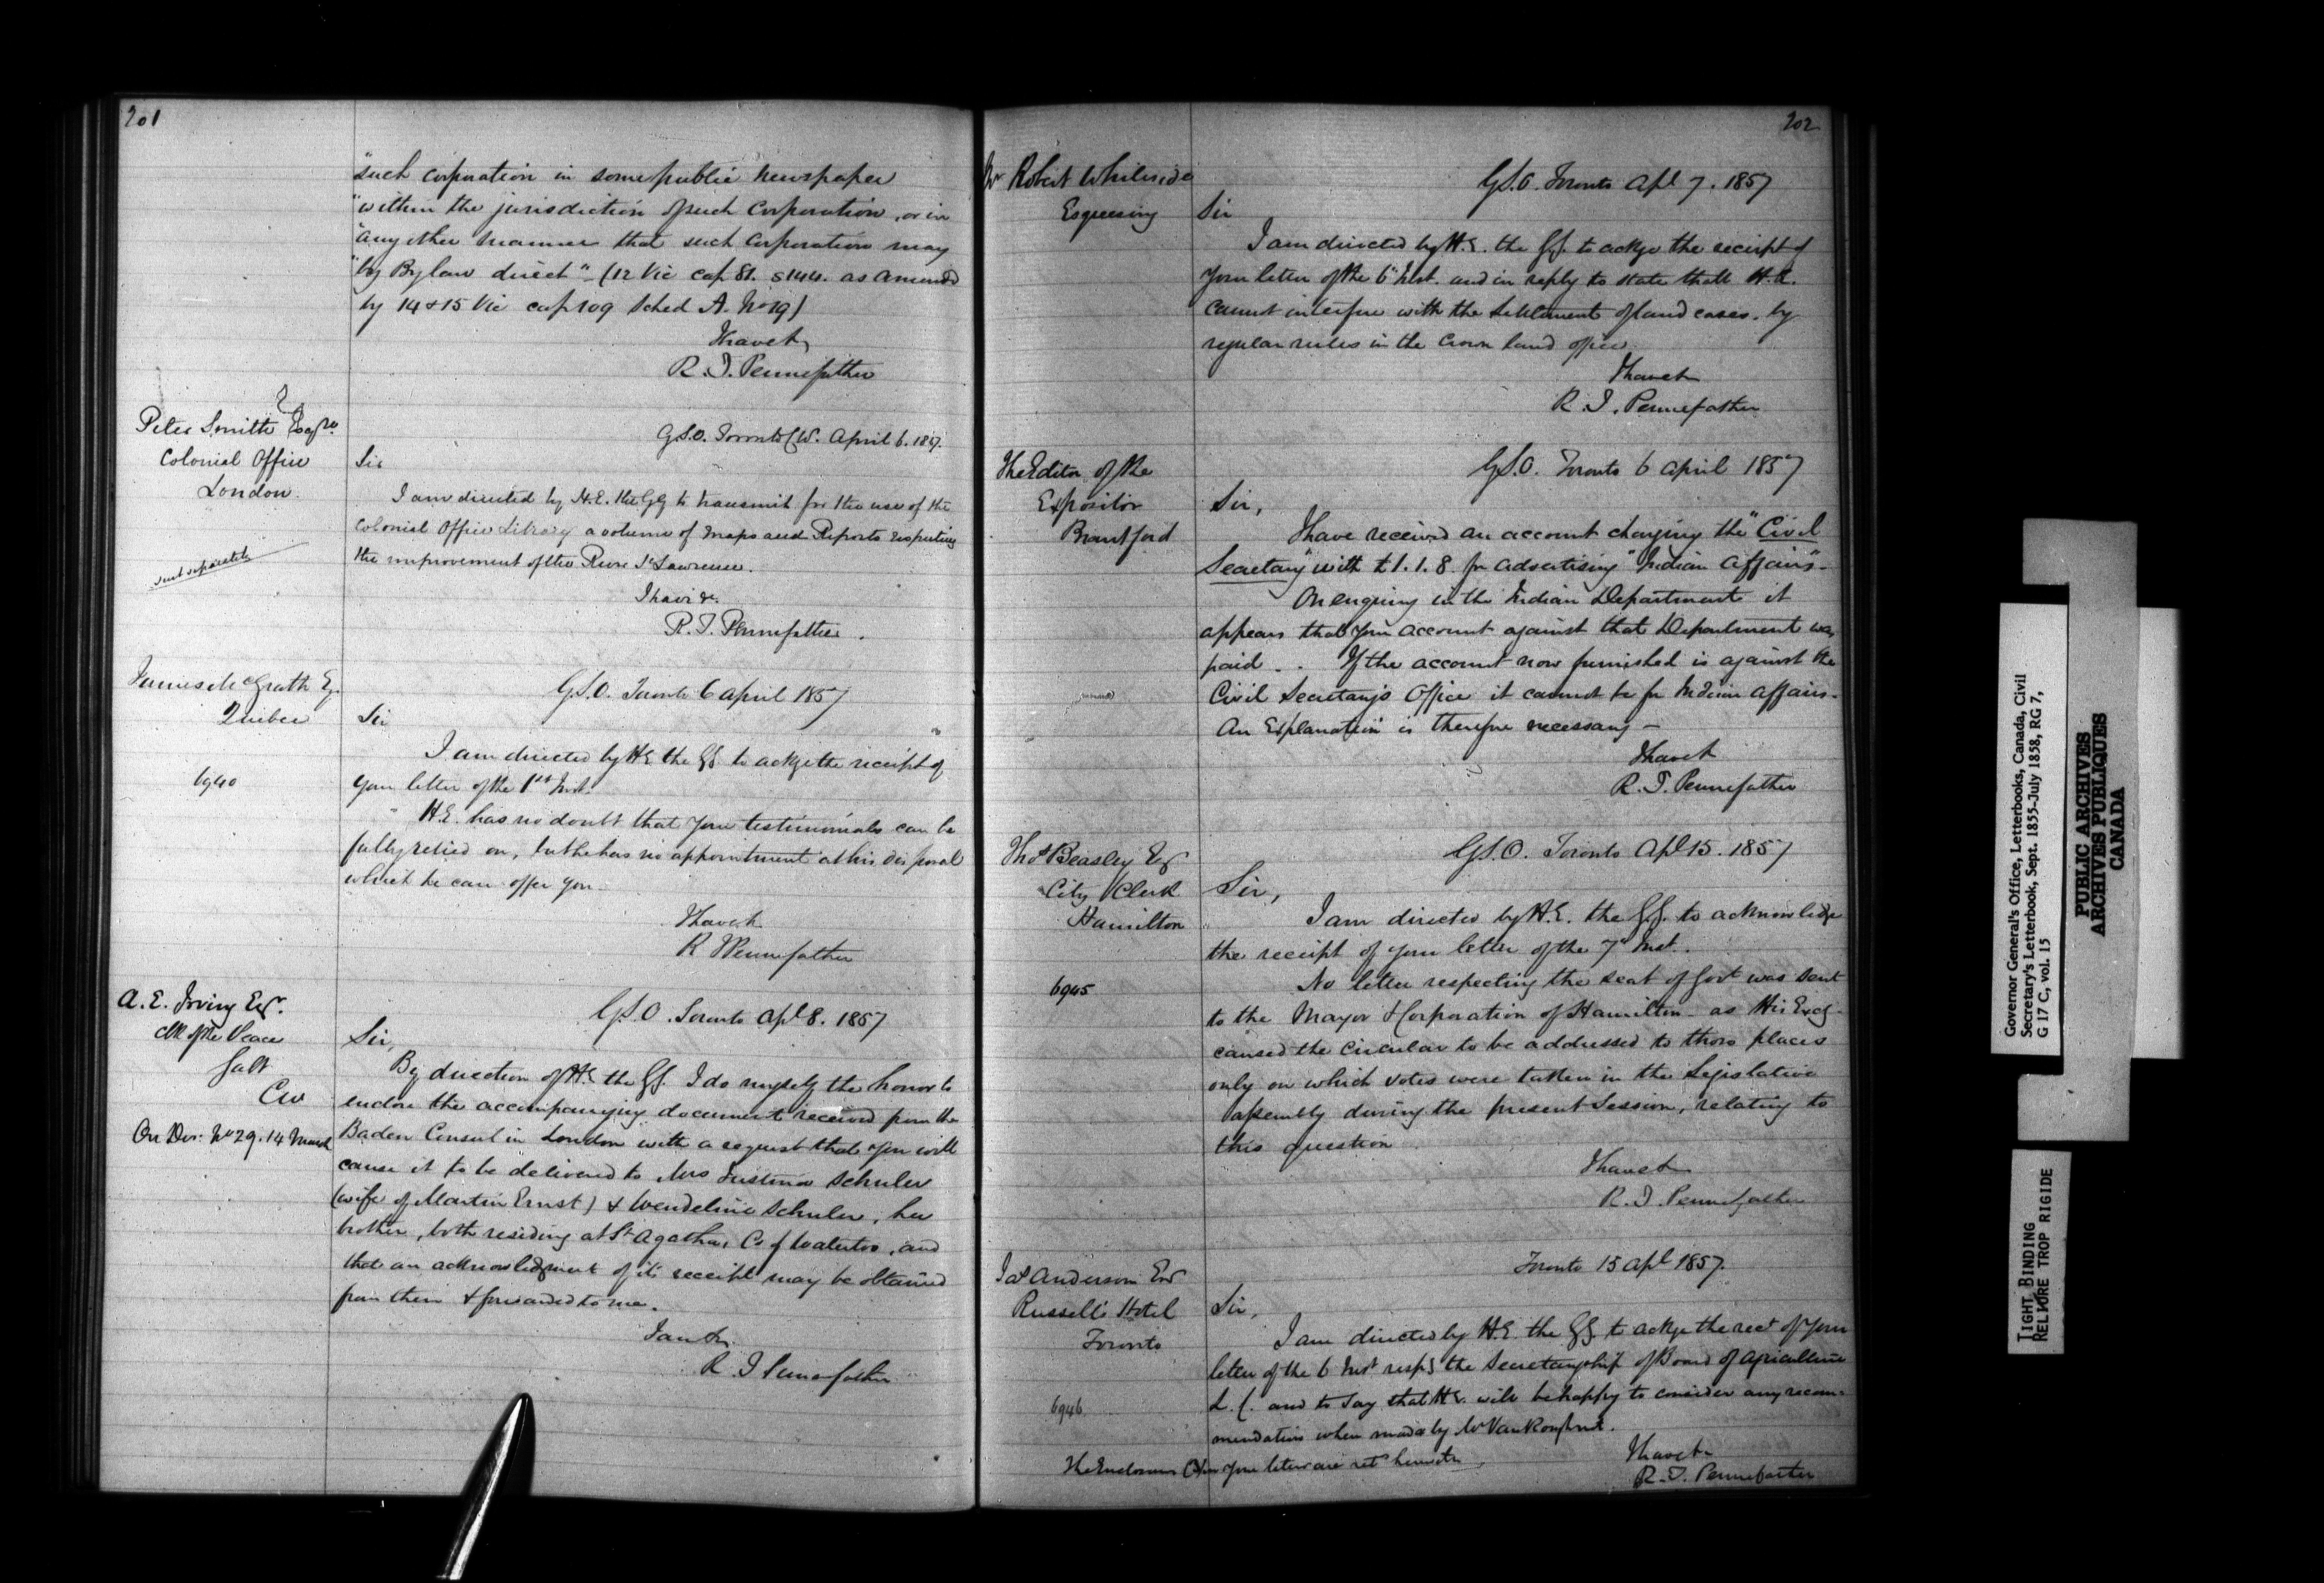 201
"such corporation in some public newspaper
"within the jurisdiction of such Corporation, or in
"any other manner that such Corporation may
"by Bylaw direct" - (12 Vic cap 81. s 144. as amend
by 14 & 15 Vic cap 109 Sched A. No 19)
I have &
R. T. Pennefather
Peter Smith Esqre
Colonial Office
London.
sent separately
G.S.O. Toronto C.W. April 6. 1857.
Sir
I am directed by H.E. the GG to transmit for the use of the
Colonial Office Library a volume of maps and Reports respecting
the improvement of the River St Lawrence.
I have &c.
R. T. Pennefather.
James McGrath Eq.
Quebec
6940
G.S.O. Toronto 6 april 1857
Sir
I am directed by H.E. the GG. to ackge the receipt of
your letter of the 1st Inst.
H.E. has no doubt that your testimonials can be
fully relied on, but he has no appointment at his disposal
which he can offer you
I have &
R T Pennefather
A. E. Irving Eqr.
Clk of the Peace
Galt
CW
On Des: No 29. 14 March
G.S.O. Toronto Apl 8. 1857
Sir,
By direction of H.E. the GG. I do myself the honor to
enclose the accompanying document received from the
Baden Consul in London with a request that you will
cause it to be delivered to Mrs Justina Schuler
(wife of Martin Ernst) & Wendeline Schuler, her
brother, both residing at St Agatha, Co of Waterloo, and
that an acknowledgment of its receipt may be obtained
from them & forwarded to me.
I am &
R. T Pennefather
202
Mr Robert Whiteside
Esquesing
G.S.O. Toronto Apl 7. 1857
Sir
I am directed by H.E. the GG. to ackge the receipt of
your letter of the 6th Inst. and in reply to state that H.E.
cannot interfere with the settlement of land cases, by
regular rules in the Crown land office
I have &
R. T. Pennefather
The Editor of the
Expositor
Brantford
G.S.O. Toronto 6 april 1857
Sir,
I have received an account charging the "Civil
Secretary" with £1.1.8. for advertising "Indian Affairs" -
On enquiry in the Indian Department it
appears that your account against that Department was
paid. - If the account now furnished is against the
Civil Secretary's Office it cannot be for Indian affairs -
An Explanation is therefore necessary -
I have &
R. T. Pennefather
Thos Beasley Eqr
City Clerk
Hamilton
6945
G.S.O. Toronto Apl 15. 1857
Sir,
I am directed by H.E. the G.G. to acknowledge
the receipt of your letter of the 7th Inst.
No letter respecting the seat of Govt was sent
to the Mayor & Corporation of Hamilton - as His Excy
caused the circular to be addressed to those places
only on which votes were taken in the Legislative
Assembly during the present Session, relating to
this question
I have &
R. T. Pennefather
Jas Anderson Eqr
Russell's Hotel
Toronto
6946
Toronto 15 Apl 1857.
Sir,
I am directed by H.E. the GG. to ackge the rect of your
letter of the 6 Inst respg the Secretaryship of Board of Agriculture
L.C. and to say that H.E. will be happy to consider any recom-
mendation when made by Mr Vankoughnet.
The Enclosures in your letter are retd herewith
I have &
R. T. Pennefather
Governor General's Office, Letterbooks, Canada, Civil
Secretary's Letterbook, Sept. 1855-July 1858, RG 7,
G 17 C, vol. 15
PUBLIC ARCHIVES
ARCHIVES PUBLIQUES
CANADA
TIGHT BINDING
RELIURE TROP RIGIDE